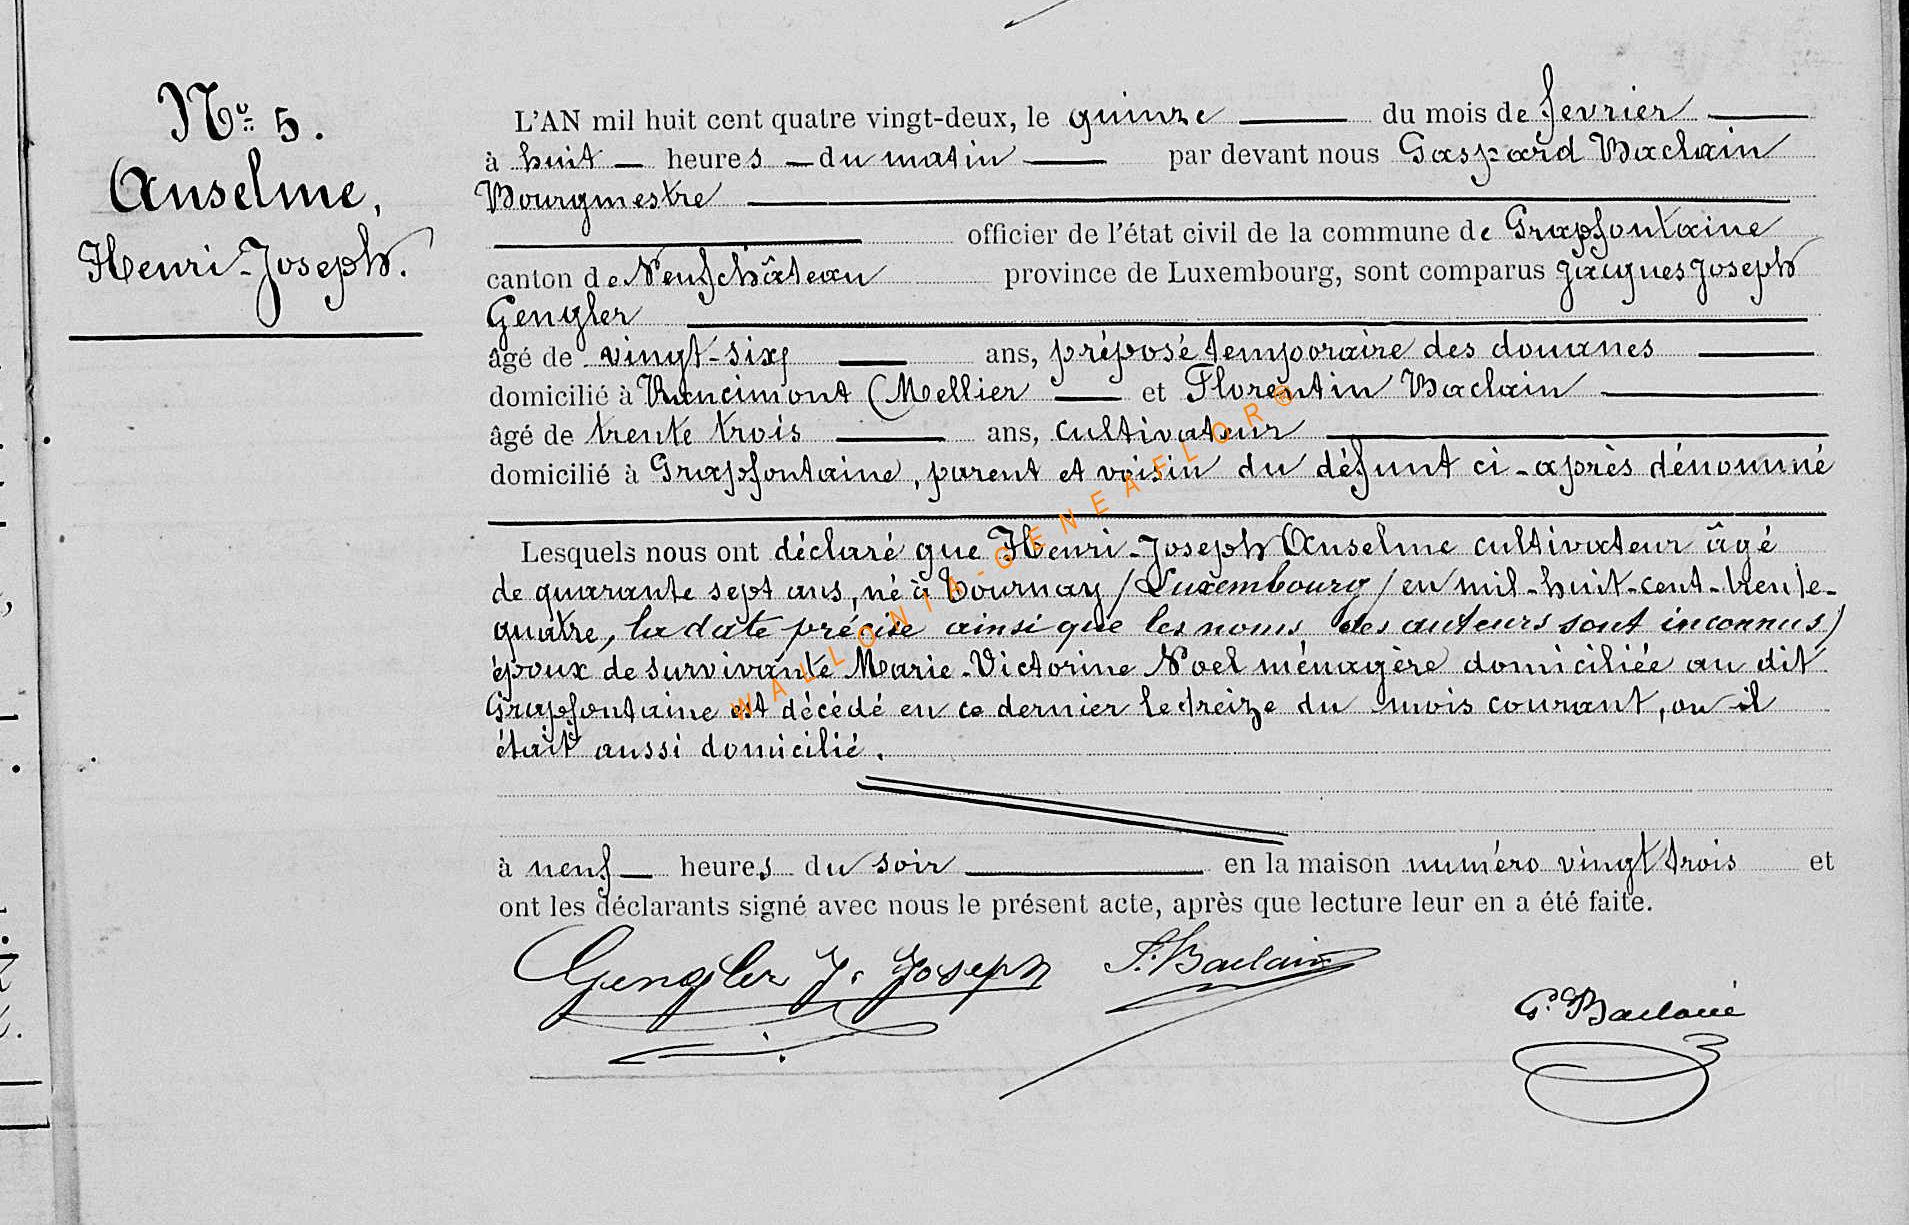 Nº 5.
Anselme,
Henri-Joseph.
L'AN mil huit cent quatre vingt-deux, le quinze du mois de fevrier
à huit heures du matin par devant nous Gaspard Baclain
Bourgmestre
officier de l'état civil de la commune de Grapfontaine
canton de Neufchâteau province de Luxembourg, sont comparus Jacques Joseph
Gengler
âgé de vingt-six ans, préposé temporaire des douanes
domicilié à Rancimont (Mellier et Florentin Baclain
âgé de trente trois ans, cultivateur
domicilié à Grapfontaine, parent et voisin du défunt ci-après dénommé
Lesquels nous ont déclaré que Henri-Joseph Anselme cultivateur âgé
de quarante sept ans, né à Tournay (Luxembourg) en mil-huit-cent-trente-
quatre, la date précise ainsi que les noms des auteurs sont inconnus)
époux de survivante Marie-Victorine Noel ménagère domiciliée au dit
Grapfontaine est décédé en ce dernier le treize du mois courant, ou il
était aussi domicilié.
à neuf heures du soir en la maison numéro vingt trois et
ont les déclarants signé avec nous le présent acte, après que lecture leur en a été faite.
Gengler J. Joseph F. Baclain
G. Baclain
WALLONIA-GENEAFLOR®